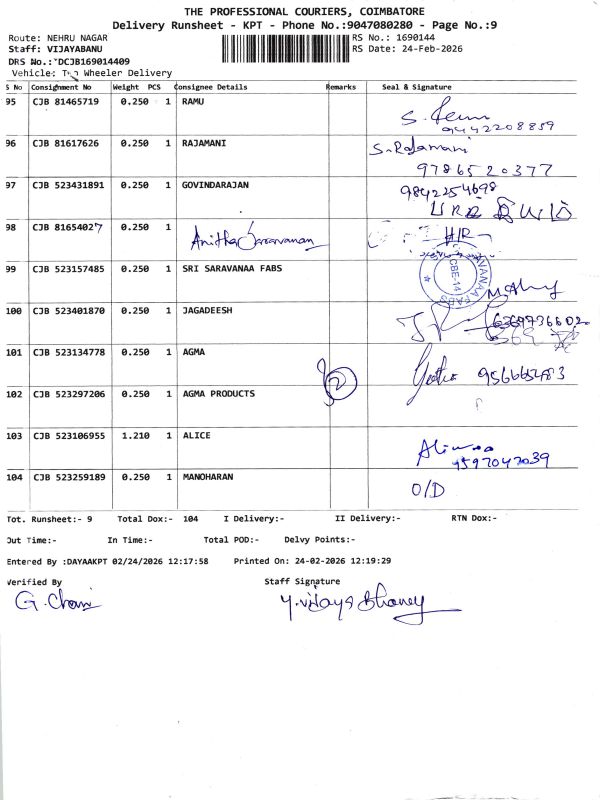 THE PROFESSIONAL COURIERS, COIMBATORE
Delivery Runsheet - KPT - Phone No.:9047080280 - Page No.:9
Route: NEHRU NAGAR
RS No.: 1690144
Staff: VIJAYABANU
RS Date: 24-Feb-2026
DRS No.: DCJB169014409
Vehicle: Two Wheeler Delivery
S No Consignment No Weight PCS Consignee Details Remarks Seal & Signature
95 CJB 81465719 0.250 1 RAMU
9442208859
96 CJB 81617626 0.250 1 RAJAMANI S.Rajamani
9786520377
97 CJB 523431891 0.250 1 GOVINDARAJAN 9842254698
98 CJB 81654027 0.250 1 Anitha Saravanan
99 CJB 523157485 0.250 1 SRI SARAVANAA FABS
CBE-14
100 CJB 523401870 0.250 1 JAGADEESH 6369736602
101 CJB 523134778 0.250 1 AGMA
102 CJB 523297206 0.250 1 AGMA PRODUCTS 2
103 CJB 523106955 1.210 1 ALICE
9597047039
104 CJB 523259189 0.250 1 MANOHARAN O/D
Tot. Runsheet:- 9 Total Dox:- 104 I Delivery:- II Delivery:- RTN Dox:-
Out Time:- In Time:- Total POD:- Delvy Points:-
Entered By :DAYAAKPT 02/24/2026 12:17:58 Printed On: 24-02-2026 12:19:29
Verified By Staff Signature